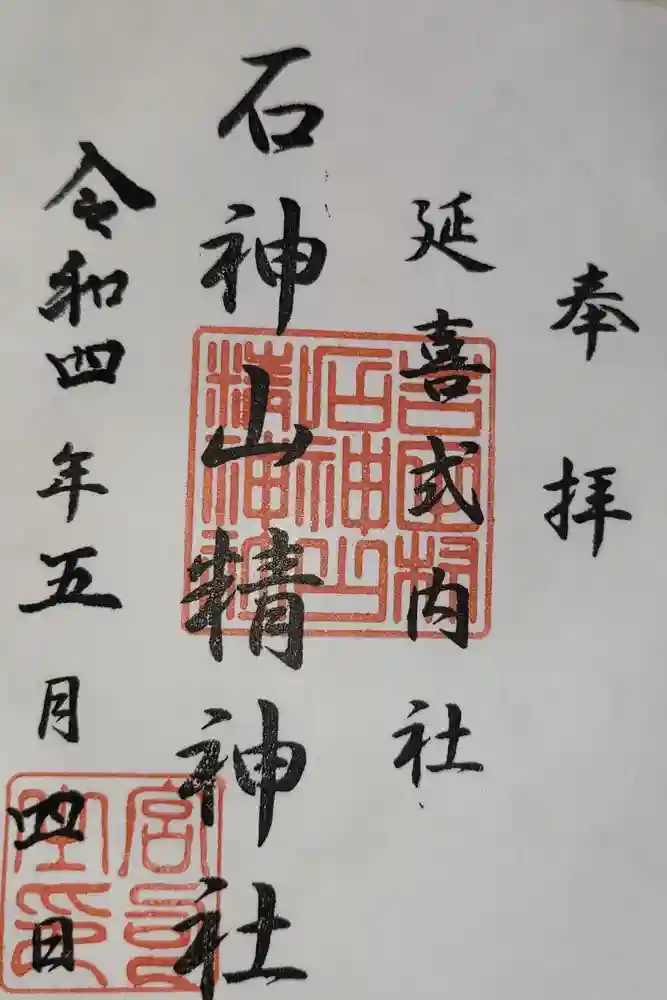 奉拝
延喜式内社
石神山精神社
令和四年五月四日
吉岡村
石神山
精神社
宮司
之印